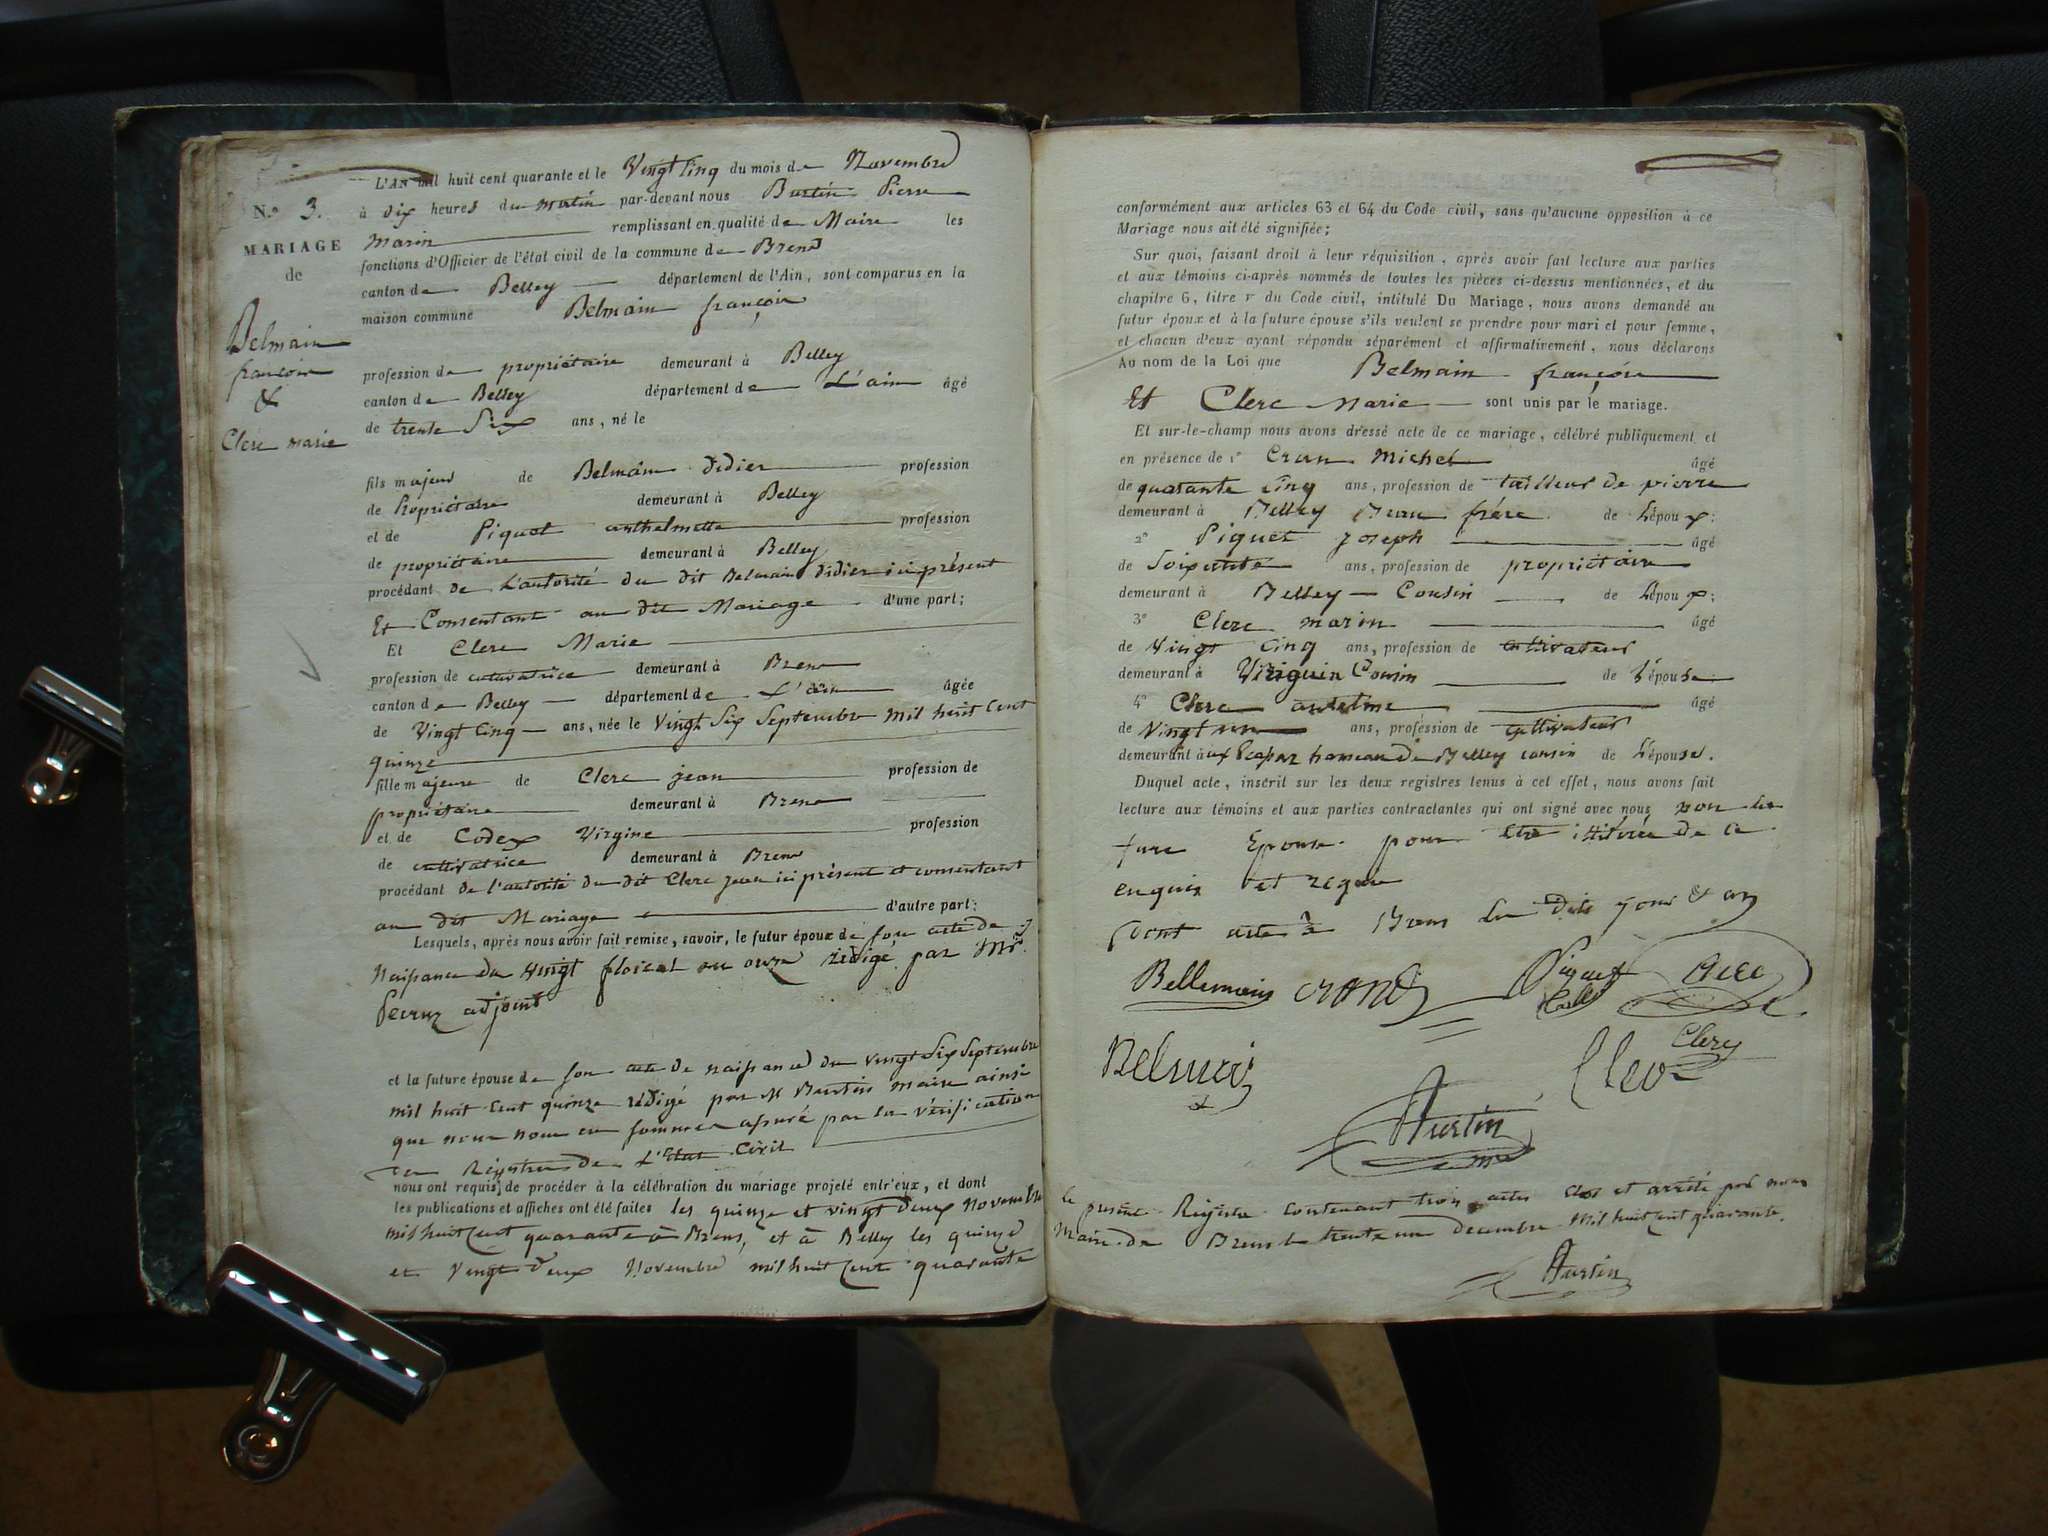 L'AN mil huit cent quarante et le Vingt Cinq du mois de Novembre
N.º 3.
à dix heures du matin par-devant nous Burtin Pierre
MARIAGE
Marin remplissant en qualité de Maire les
de
fonctions d'Officier de l'état civil de la commune de Brens
canton de Belley département de l'Ain, sont comparus en la
maison commune Belmain françois
Belmain
françois
&
Clerc marie
profession de propriétaire demeurant à Belley
canton de Belley département de L'ain âgé
de trente Six ans, né le
fils majeur de Belmain Didier profession
de Propriétaire demeurant à Belley
et de Piquet anthelmette profession
de propriétaire demeurant à Belley
procédant de L'autorité du dit Belmain Didier ici présent
Et Consentant au dit Mariage d'une part;
Et Clerc Marie
profession de cultivatrice demeurant à Brens
canton de Belley département de L'ain âgée
de Vingt Cinq ans, née le Vingt Six Septembre mil huit Cent
quinze
fille majeure de Clerc jean profession de
propriétaire demeurant à Brens
et de Codex Virgine profession
de cultivatrice demeurant à Brens
procédant de l'autorité du dit Clerc jean ici présent et consentant
au dit Mariage d'autre part;
Lesquels, après nous avoir fait remise, savoir, le futur époux de son acte de
Naissance du vingt floréal an onze rédigé par Mr
adjoint
et la future épouse de son acte de naissance du vingt Six Septembre
mil huit Cent quinze rédigé par M Burtin maire ainsi
que nous nous en sommes assuré par la vérification
des Registres de L'Etat Civil
nous ont requis de procéder à la célébration du mariage projeté entr'eux, et dont
les publications et affiches ont été faites les quinze et vingt deux Novembre
mil huit Cent quarante à Brens, et à Belley les quinze
et Vingt deux Novembre mil huit Cent quarante
conformément aux articles 63 et 64 du Code civil, sans qu'aucune opposition à ce
Mariage nous ait été signifiée;
Sur quoi, faisant droit à leur réquisition, après avoir fait lecture aux parties
et aux témoins ci-après nommés de toutes les pièces ci-dessus mentionnées, et du
chapitre 6, titre V du Code civil, intitulé Du Mariage, nous avons demandé au
futur époux et à la future épouse s'ils veulent se prendre pour mari et pour femme,
et chacun d'eux ayant répondu séparément et affirmativement, nous déclarons
Au nom de la Loi que Belmain françois
Et Clerc Marie sont unis par le mariage.
Et sur-le-champ nous avons dressé acte de ce mariage, célébré publiquement et
en présence de 1º Cran Michel âgé
de quarante cinq ans, profession de tailleur de pierre
demeurant à Belley Beau frère de l'époux;
2º Piquet Joseph âgé
de Soixante ans, profession de propriétaire
demeurant à Belley Cousin de l'époux;
3º Clerc marin âgé
de Vingt Cinq ans, profession de cultivateur
demeurant à Viriguin Cousin de l'épouse
4º Clerc antelme âgé
de Vingt ans, profession de cultivateur
demeurant à hameau de Belley cousin de l'épouse.
Duquel acte, inscrit sur les deux registres tenus à cet effet, nous avons fait
lecture aux témoins et aux parties contractantes qui ont signé avec nous non la
ture Epouse pour être illitérée de ce
enquise et requise
Dont acte à Brens les dits jour & an
Bellemain CRAND Piquet Clerc
Belmain Clerc Clerc
Burtin
me
le présent Registre Contenant trois actes Clos et arrêté par nous
Maire de Brens le trente un décembre Mil huit cent quarante.
Burtin